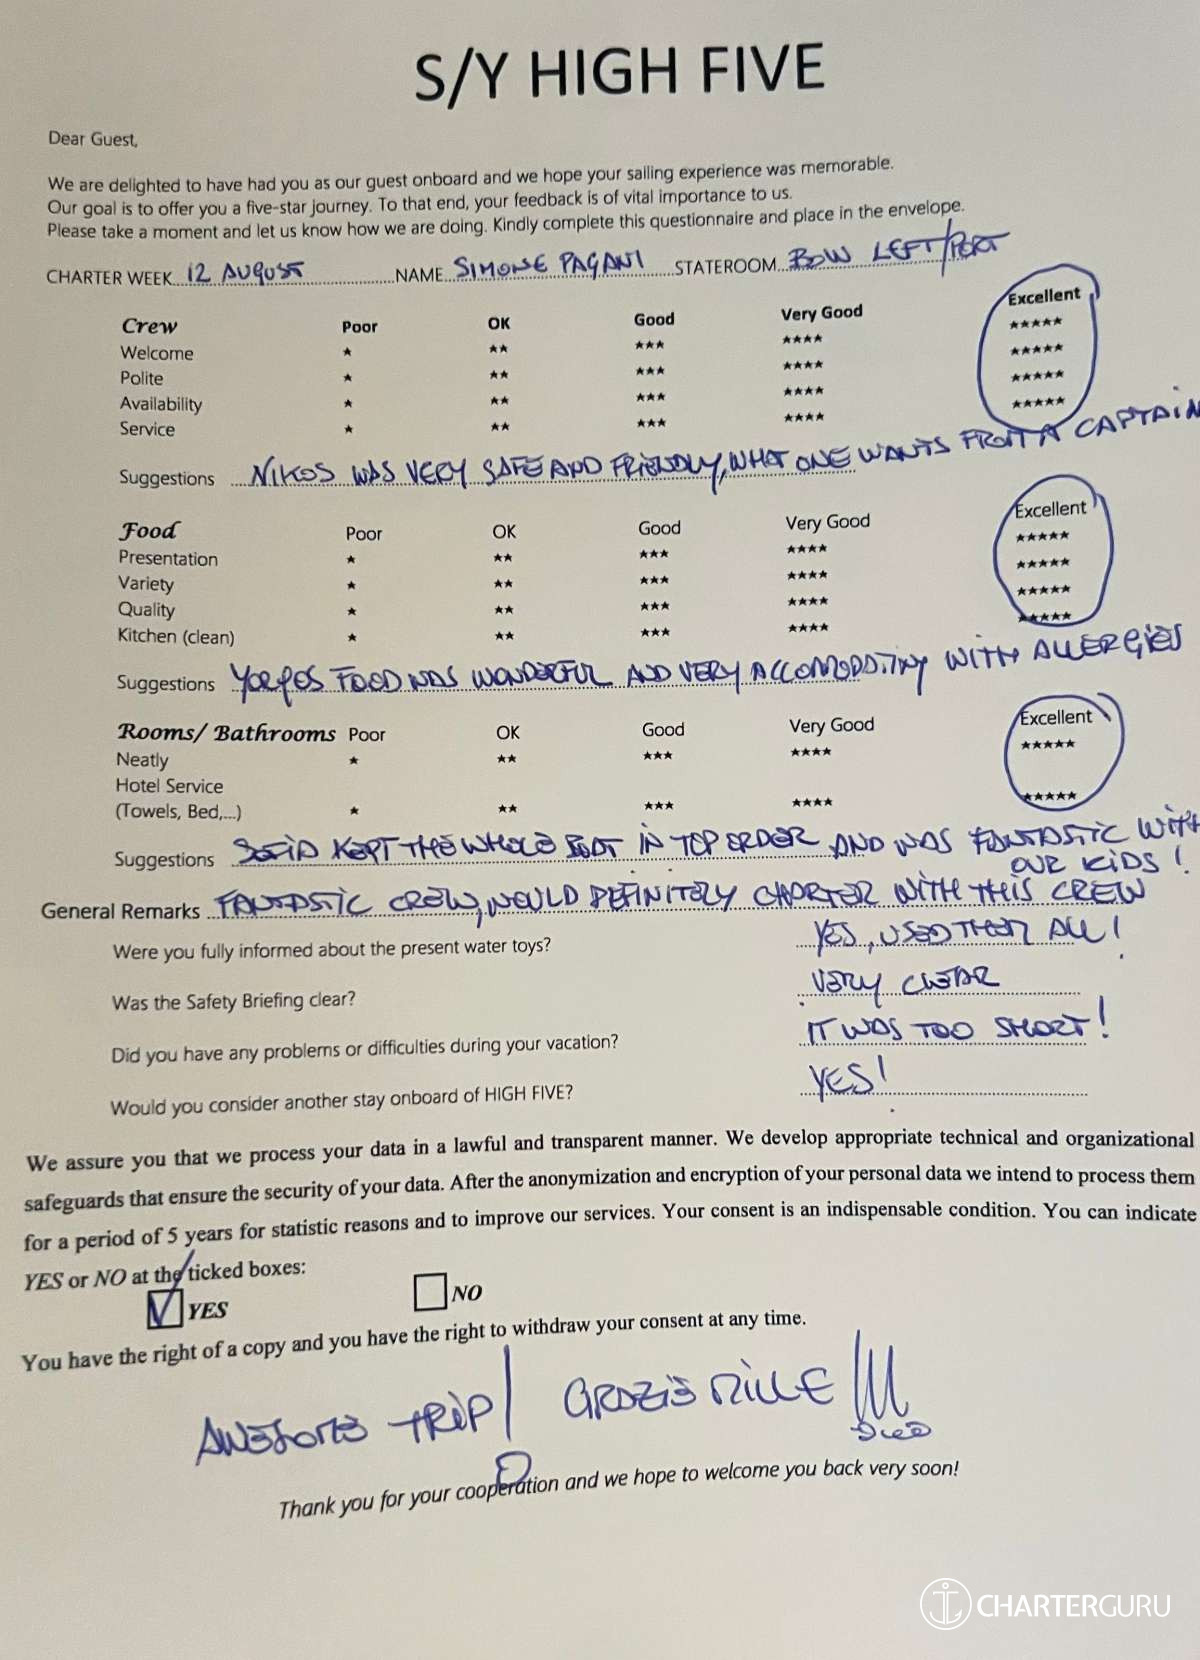 S/Y HIGH FIVE
Dear Guest,
We are delighted to have had you as our guest onboard and we hope your sailing experience was memorable.
Our goal is to offer you a five-star journey. To that end, your feedback is of vital importance to us.
Please take a moment and let us know how we are doing. Kindly complete this questionnaire and place in the envelope.
CHARTER WEEK 12 AUGUST NAME SIMONE PAGANI STATEROOM BOW LEFT/PORT
Crew Poor OK Good Very Good Excellent
Welcome ★ ★★ ★★★ ★★★★ ★★★★★
Polite ★ ★★ ★★★ ★★★★ ★★★★★
Availability ★ ★★ ★★★ ★★★★ ★★★★★
Service ★ ★★ ★★★ ★★★★ ★★★★★
Suggestions NIKOS WAS VERY SAFE AND FRIENDLY, WHAT ONE WANTS FROM A CAPTAIN
Food Poor OK Good Very Good Excellent
Presentation ★ ★★ ★★★ ★★★★ ★★★★★
Variety ★ ★★ ★★★ ★★★★ ★★★★★
Quality ★ ★★ ★★★ ★★★★ ★★★★★
Kitchen (clean) ★ ★★ ★★★ ★★★★ ★★★★★
Suggestions YORGOS FOOD WAS WONDERFUL AND VERY ACCOMODATING WITH ALLERGIES
Rooms/ Bathrooms Poor OK Good Very Good Excellent
Neatly ★ ★★ ★★★ ★★★★ ★★★★★
Hotel Service
(Towels, Bed,...) ★ ★★ ★★★ ★★★★ ★★★★★
Suggestions SOFIA KEPT THE WHOLE BOAT IN TOP ORDER AND WAS FANTASTIC WITH
OUR KIDS!
General Remarks FANTASTIC CREW, WOULD DEFINITELY CHARTER WITH THIS CREW
Were you fully informed about the present water toys? YES, USED THEM ALL!
Was the Safety Briefing clear? VERY CLEAR
Did you have any problems or difficulties during your vacation? IT WAS TOO SHORT!
Would you consider another stay onboard of HIGH FIVE? YES!
We assure you that we process your data in a lawful and transparent manner. We develop appropriate technical and organizational
safeguards that ensure the security of your data. After the anonymization and encryption of your personal data we intend to process them
for a period of 5 years for statistic reasons and to improve our services. Your consent is an indispensable condition. You can indicate
YES or NO at the ticked boxes:
YES NO
You have the right of a copy and you have the right to withdraw your consent at any time.
AWESOME TRIP! GRAZIE MILLE !!!
Thank you for your cooperation and we hope to welcome you back very soon!
CHARTERGURU